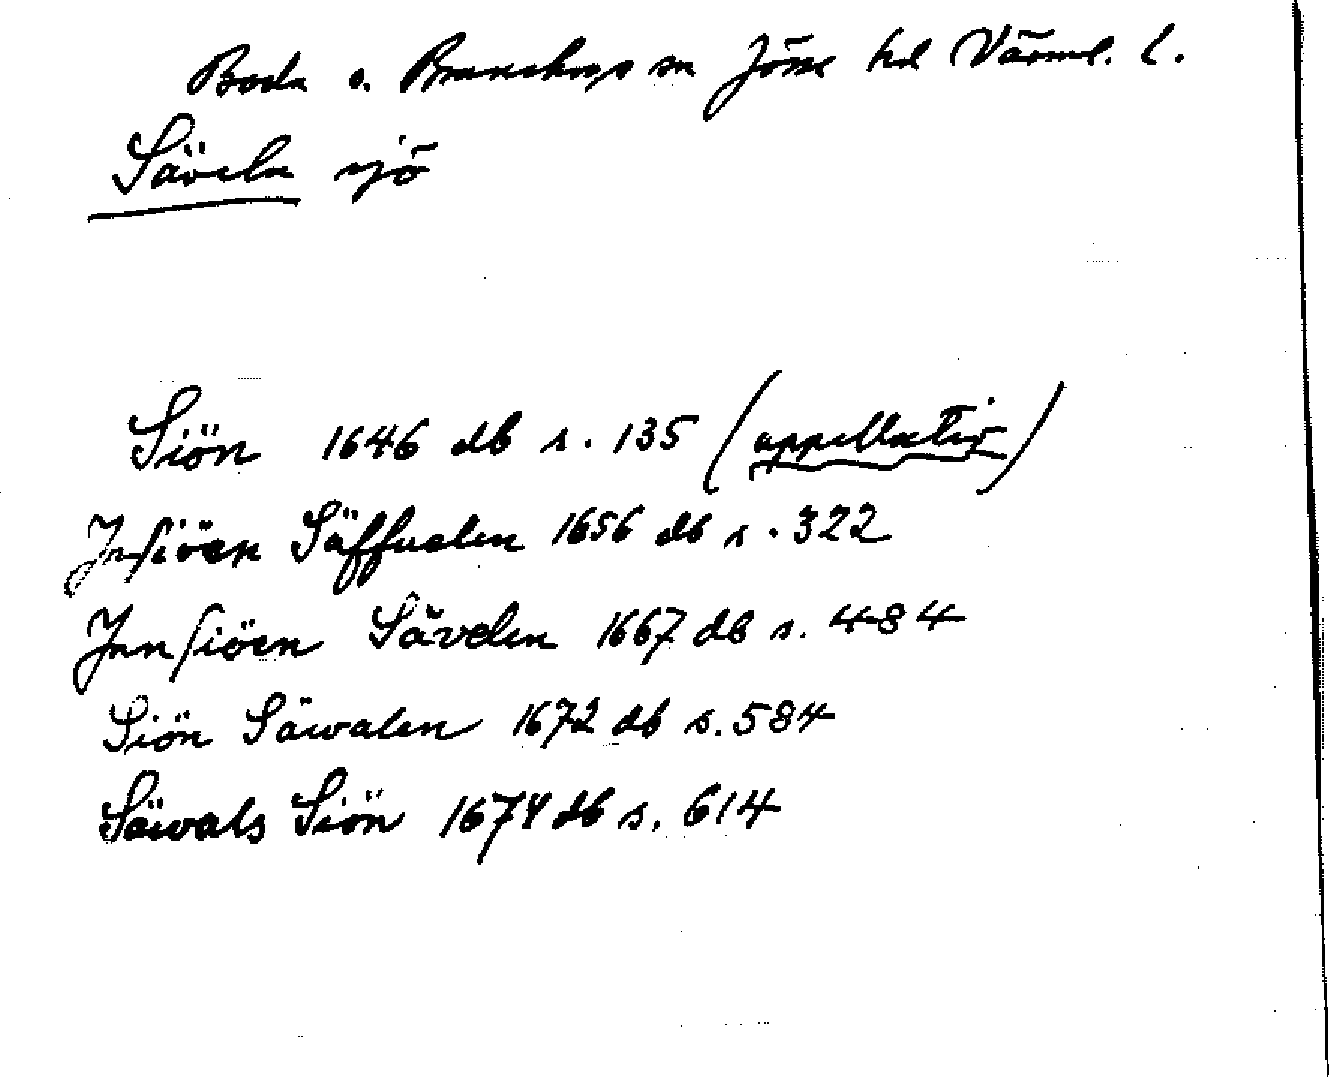 Boda o. Brunskogs sn Jösse hd Värml. l.
Säveln sjö
Siön 1646 db s. 135 (appellativ)
Jnsiöen Säffuelen 1656 db s. 322
Jnnsiöen Sävelen 1667 db s. 484
Siön Säwalen 1672 db s. 584
Säwals Siön 1674 db s. 614